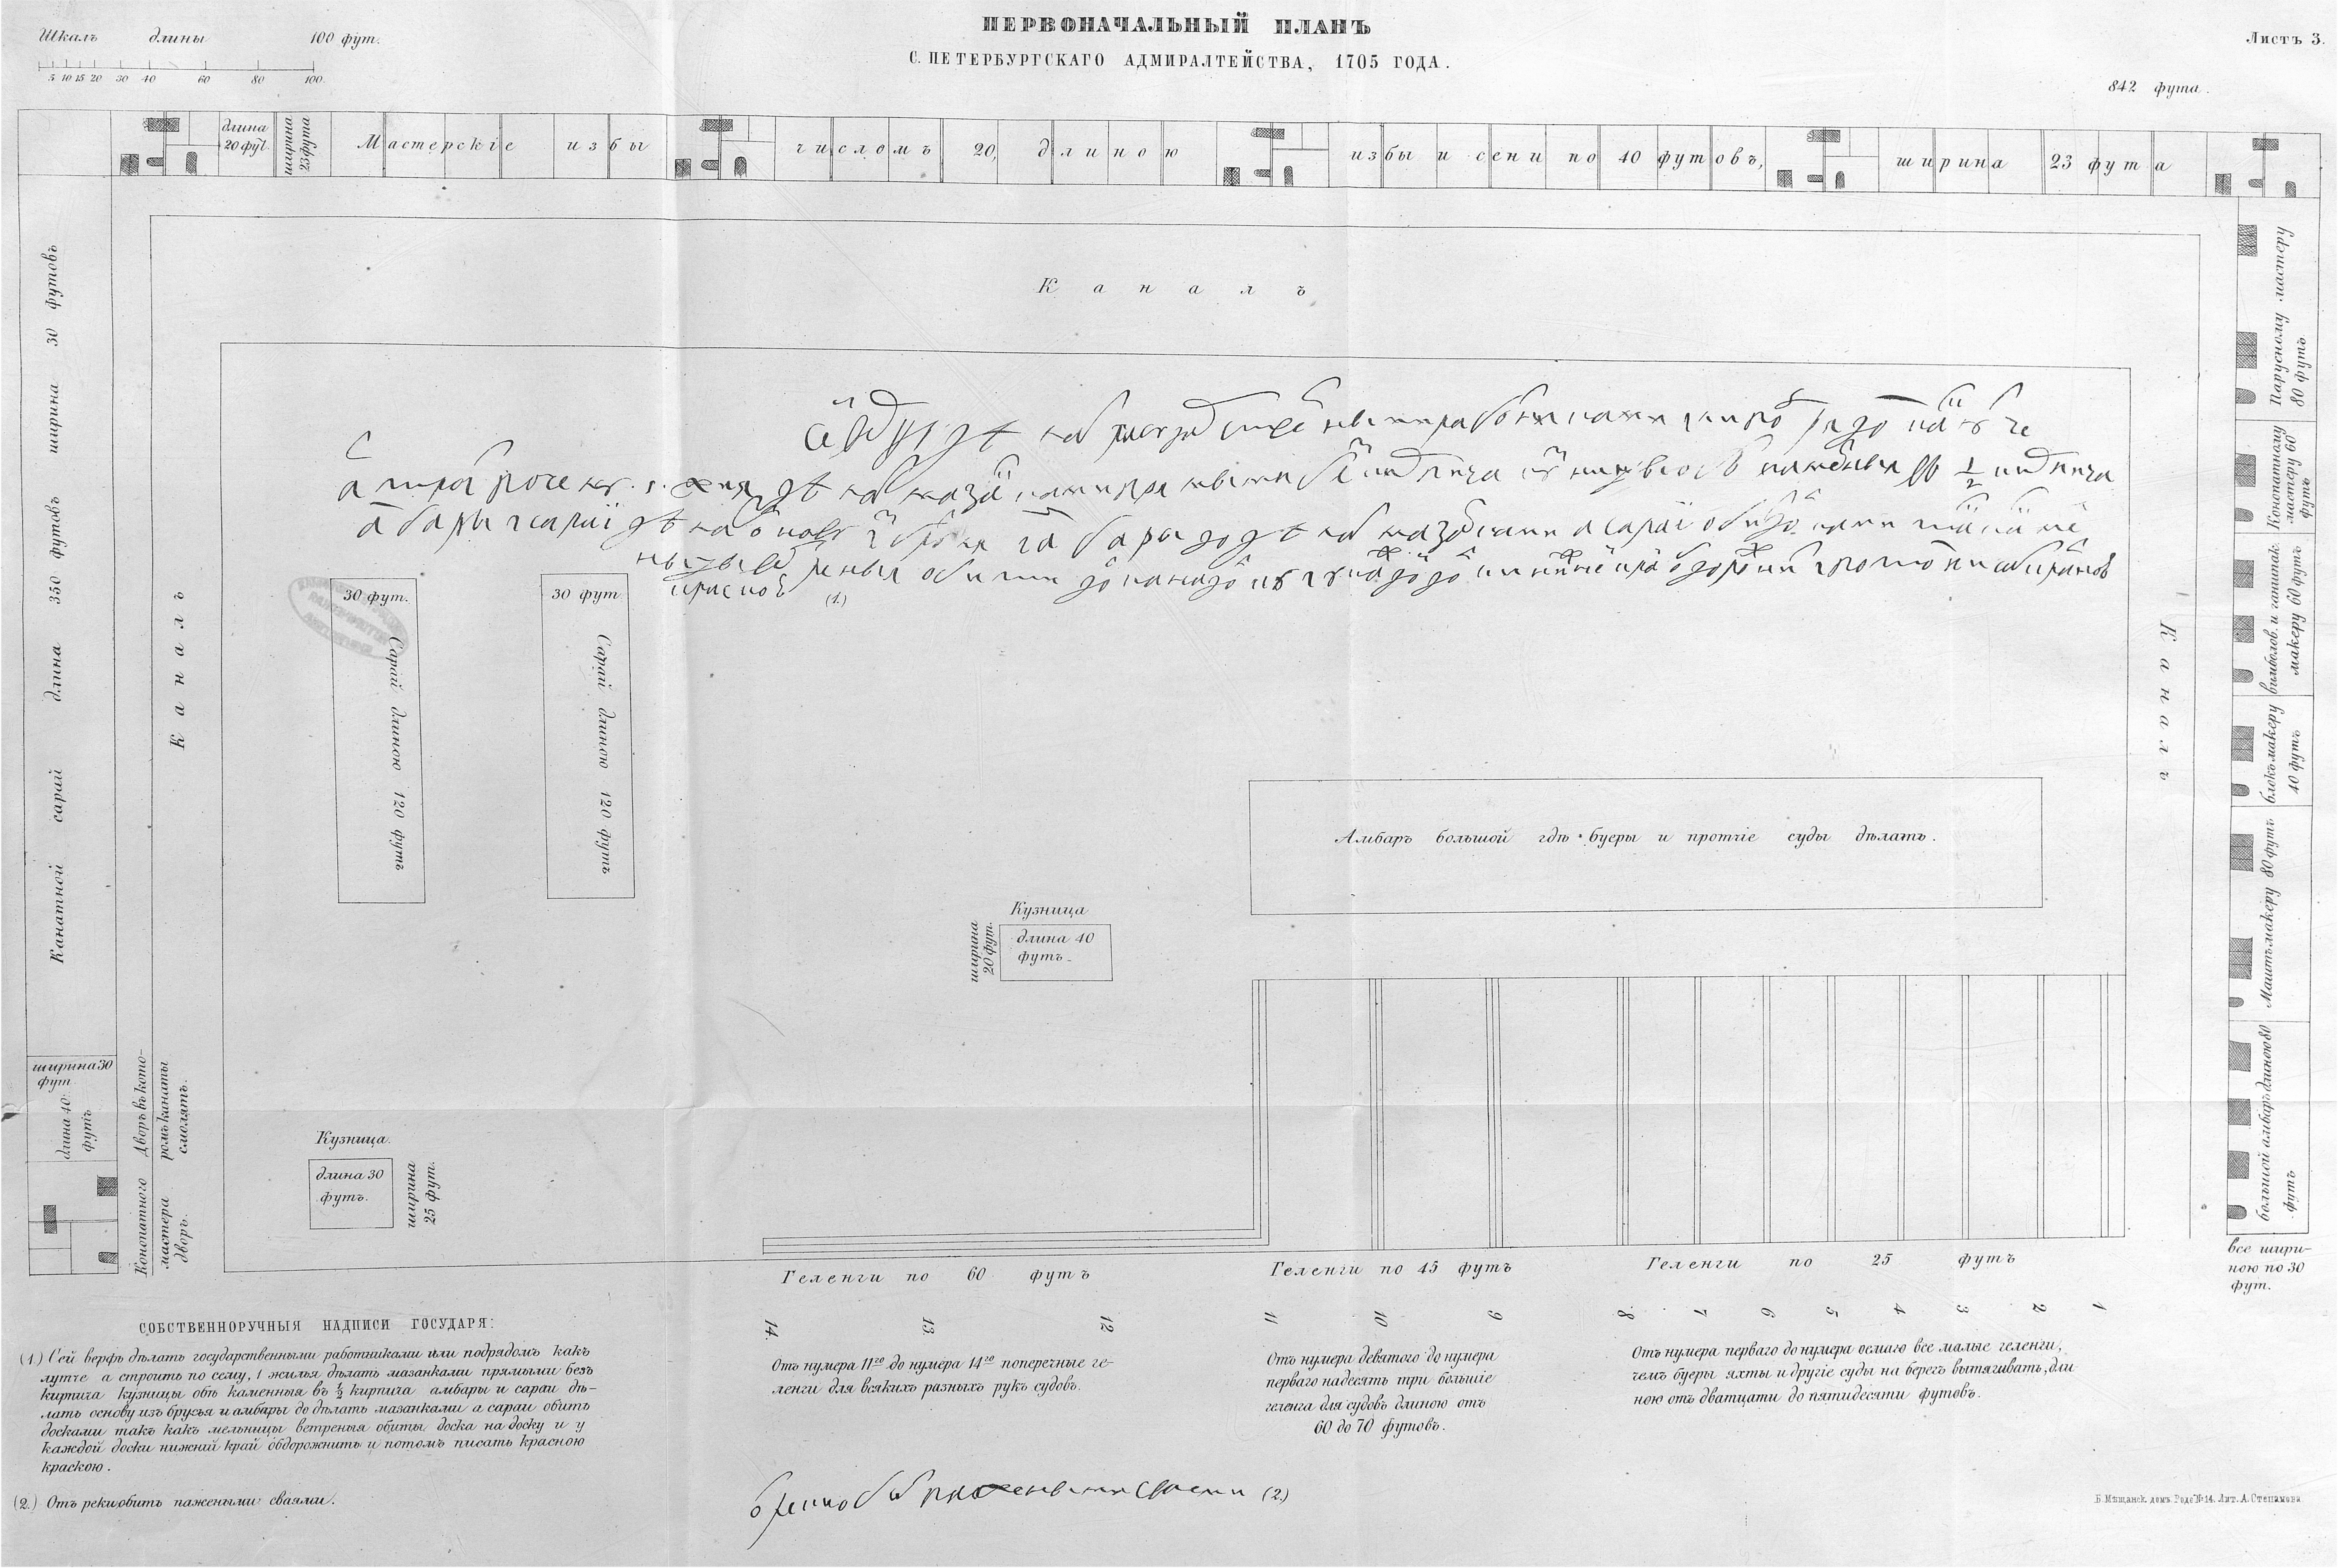 ПЕРВОНАЧАЛЬНЫЙ ПЛАНЪ
С. ПЕТЕРБУРГСКАГО АДМИРАЛТЕЙСТВА, 1705 ГОДА.
Листъ 3.
Шкалъ длины 100 фут.
5 10 15 20 30 40 60 80 100.
842 фута.
длина
20 фут.
ширина
23 фута
Мастерскіе избы числомъ 20, длиною избы и сени по 40 футовъ, ширина 23 фута
Каналъ
Канатной сарай длина 350 футовъ ширина 30 футовъ
Каналъ
Каналъ
(1.)
30 фут.
Сарай длиною 120 футъ
30 фут
Сарай длиною 120 футъ
Амбаръ большой гдѣ буеры и протчіе суды дѣлать.
Кузница
длина 40
футъ.
ширина
20 фут.
Кузница.
длина 30
футъ.
ширина
25 фут.
ширина 30
фут
длина 40
футъ
Дворъ въ кото-
ромъ канаты
смолятъ.
Конопатного
мастера
дворъ.
Парусному мастеру
80 футъ
Конопатному
мастеру 60
футъ
макеру 60 футъ
блокъмакеру
40 футъ
Маштъмакеру 80 футъ
большой амбаръ длиною 80
футъ
все шири-
ною по 30
фут.
Геленги по 60 футъ
Геленги по 45 футъ
Геленги по 25 футъ
14. 13 12 11 10 9 8 7 6 5 4 3 2 1
СОБСТВЕННОРУЧНЫЯ НАДПИСИ ГОСУДАРЯ:
(1.) Сей верфь дѣлать государственными работниками или подрядомъ какъ
лутче а строить по сему, 1 жилья дѣлать мазанками прямыми безъ
кирпича кузницы обѣ каменныя въ ½ кирпича амбары и сараи дѣ-
лать основу изъ брусья и амбары до дѣлать мазанками а сараи обить
досками такъ какъ мельницы ветреныя обиты доска на доску и у
каждой доски нижний край обдорожнить и потомъ писать красною
краскою.
(2.) Отъ реки обить пажеными сваями.
Отъ нумера 11го до нумера 14го поперечные ге-
ленги для всякихъ разныхъ рукъ судовъ.
Отъ нумера девятого до нумера
перваго надесять три большіе
геленга для судовъ длиною отъ
60 до 70 футовъ.
Отъ нумера перваго до нумера осмаго все малые геленги,
чемъ буеры яхты и другіе суды на берегъ вытягивать, дли
ною отъ дватцати до пятидесяти футовъ.
(2.)
Лит. А. Степанова